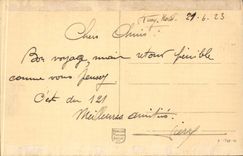 21-6-23
Chers Amis
Bon voyage, mais retour pénible
comme vous pensez
C'est du 121
Meilleures amitiés.